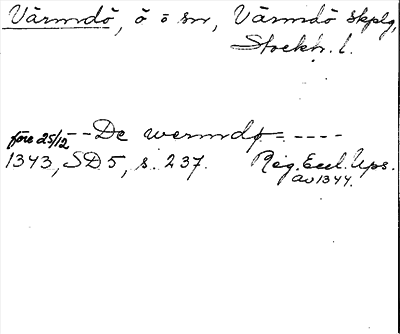 Värmdö, ö o sn, Värmdö skplg,
Stockh. l.
före 25/12 -- De wermdø = ----
1343, SD 5, s. 237. Reg. Eccl. Ups.
av 1344.